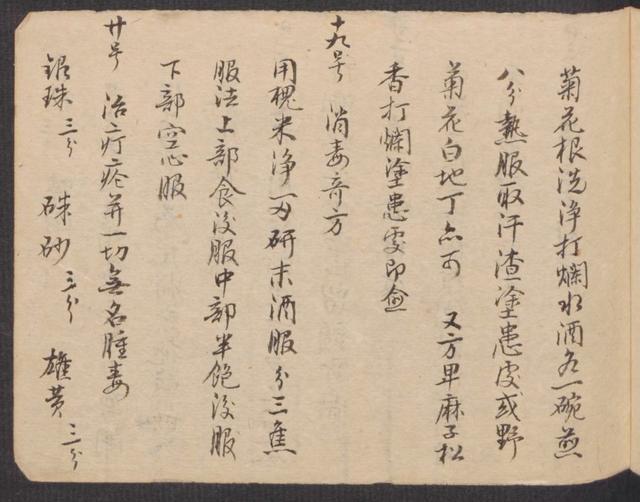 菊花根洗净打爛水酒各一碗煎
八分熱服取汗渣塗患處或野
菊花白地丁亦可　又方旱麻子松
香打爛塗患處即愈
十九号　消毒奇方
用槐米净一两研末酒服分三焦
服法上部食後服中部半飽後服
下部空心服
廿号　治疔瘡并一切無名腫毒
銀珠三分　硃砂三分　雄黄三分